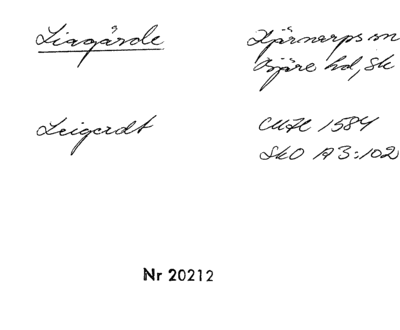 Liagårde
Hjärnarps sn
Bjäre hd, Sk
Leigerdt
1584
SkO A3:102
Nr 20212